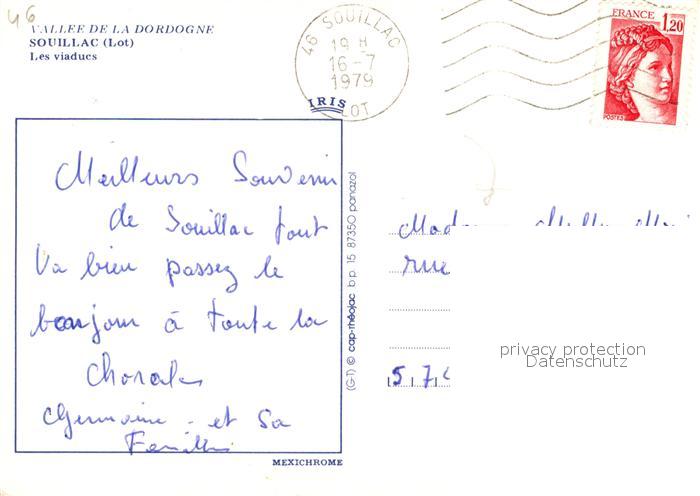 46
VALLÉE DE LA DORDOGNE
SOUILLAC (Lot)
Les viaducs
46 SOUILLAC
19 H
16-7
1979
LOT
FRANCE
1,20
POSTES
IRIS
Meilleurs Souvenir
de Souillac tout
Va bien passez le
bonjour à toute la
Chorale
Germaine - et Sa
Famille
MEXICHROME
(G-T) © cap-théojac b.p. 15 87350 panazol
rue
5 7
privacy protection
Datenschutz